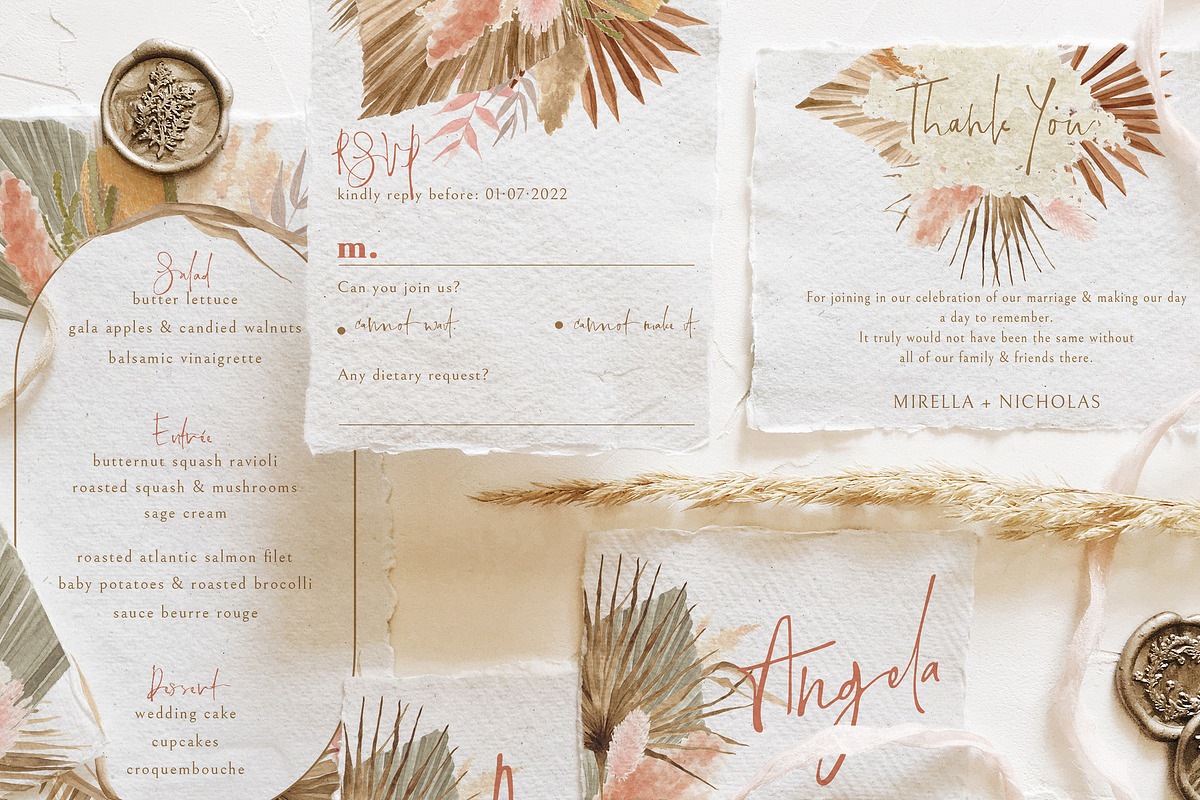 Salad
butter lettuce
gala apples & candied walnuts
balsamic vinaigrette
Entrée
butternut squash ravioli
roasted squash & mushrooms
sage cream
roasted atlantic salmon filet
baby potatoes & roasted brocolli
sauce beurre rouge
Dessert
wedding cake
cupcakes
croquembouche
RSVP
kindly reply before: 01·07·2022
m.
Can you join us?
cannot wait.
cannot make it.
Any dietary request?
Thank You
For joining in our celebration of our marriage & making our day
a day to remember.
It truly would not have been the same without
all of our family & friends there.
MIRELLA + NICHOLAS
Angela